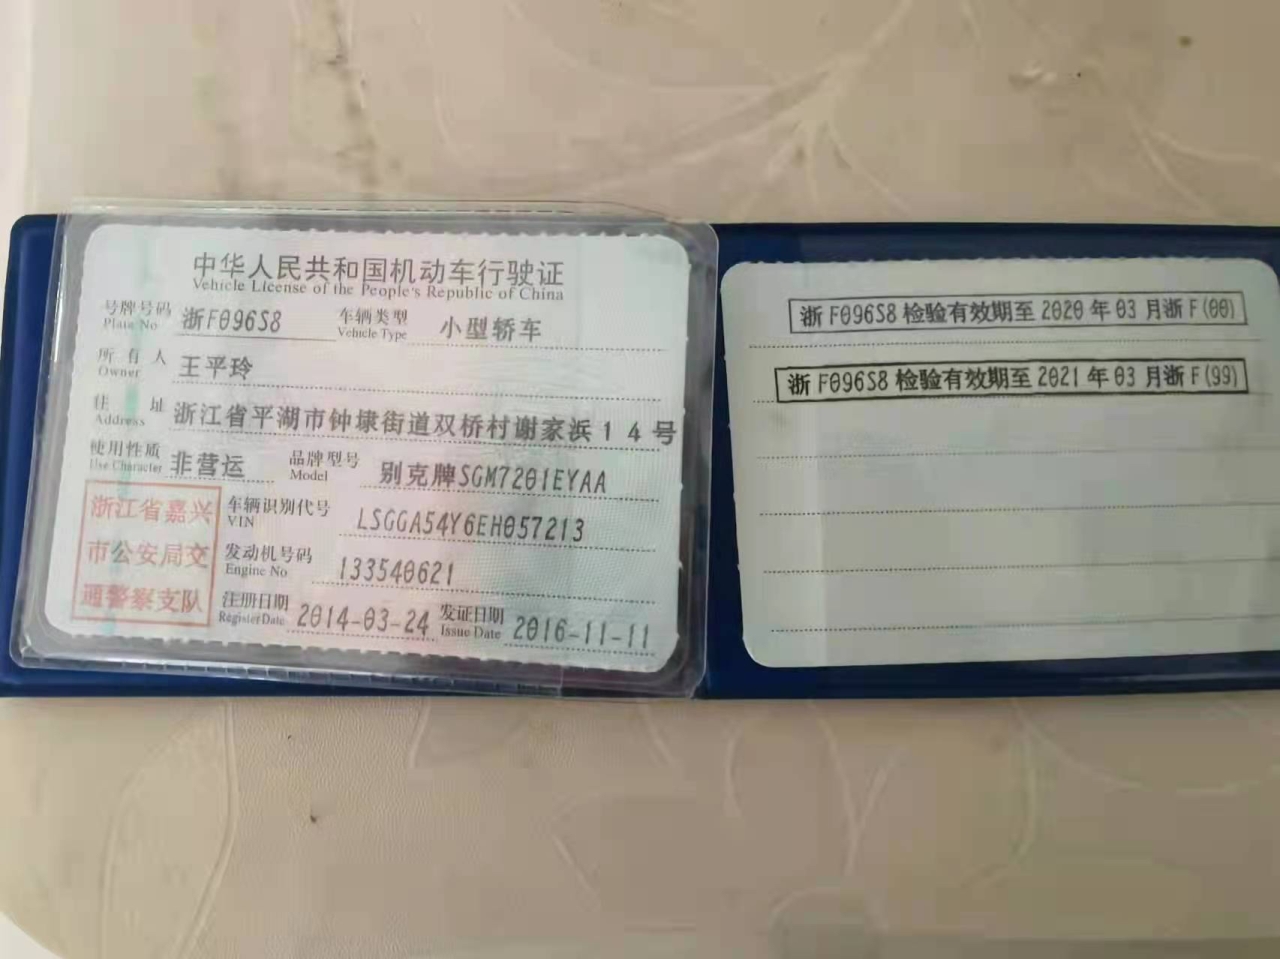 中华人民共和国机动车行驶证
Vehicle License of the People's Republic of China
号牌号码 浙F096S8 车辆类型 小型轿车
Plate No Vehicle Type
所有人 王平玲
Owner
住址 浙江省平湖市钟埭街道双桥村谢家浜14号
Address
使用性质 非营运 品牌型号 别克牌SGM7201EYAA
Use Character Model
浙江省嘉兴
市公安局交
通警察支队
车辆识别代号 LSGGA54Y6EH057213
VIN
发动机号码 133540621
Engine No
注册日期 2014-03-24 发证日期 2016-11-11
Register Date Issue Date
浙F096S8检验有效期至2020年03月浙F(00)
浙F096S8检验有效期至2021年03月浙F(99)